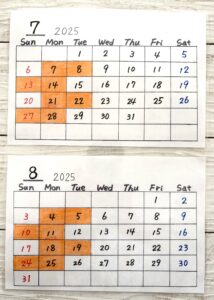 7 2025
Sun Mon Tue Wed Thu Fri Sat
1 2 3 4 5
6 7 8 9 10 11 12
13 14 15 16 17 18 19
20 21 22 23 24 25 26
27 28 29 30 31
8 2025
Sun Mon Tue Wed Thu Fri Sat
1 2
3 4 5 6 7 8 9
10 11 12 13 14 15 16
17 18 19 20 21 22 23
24 25 26 27 28 29 30
31